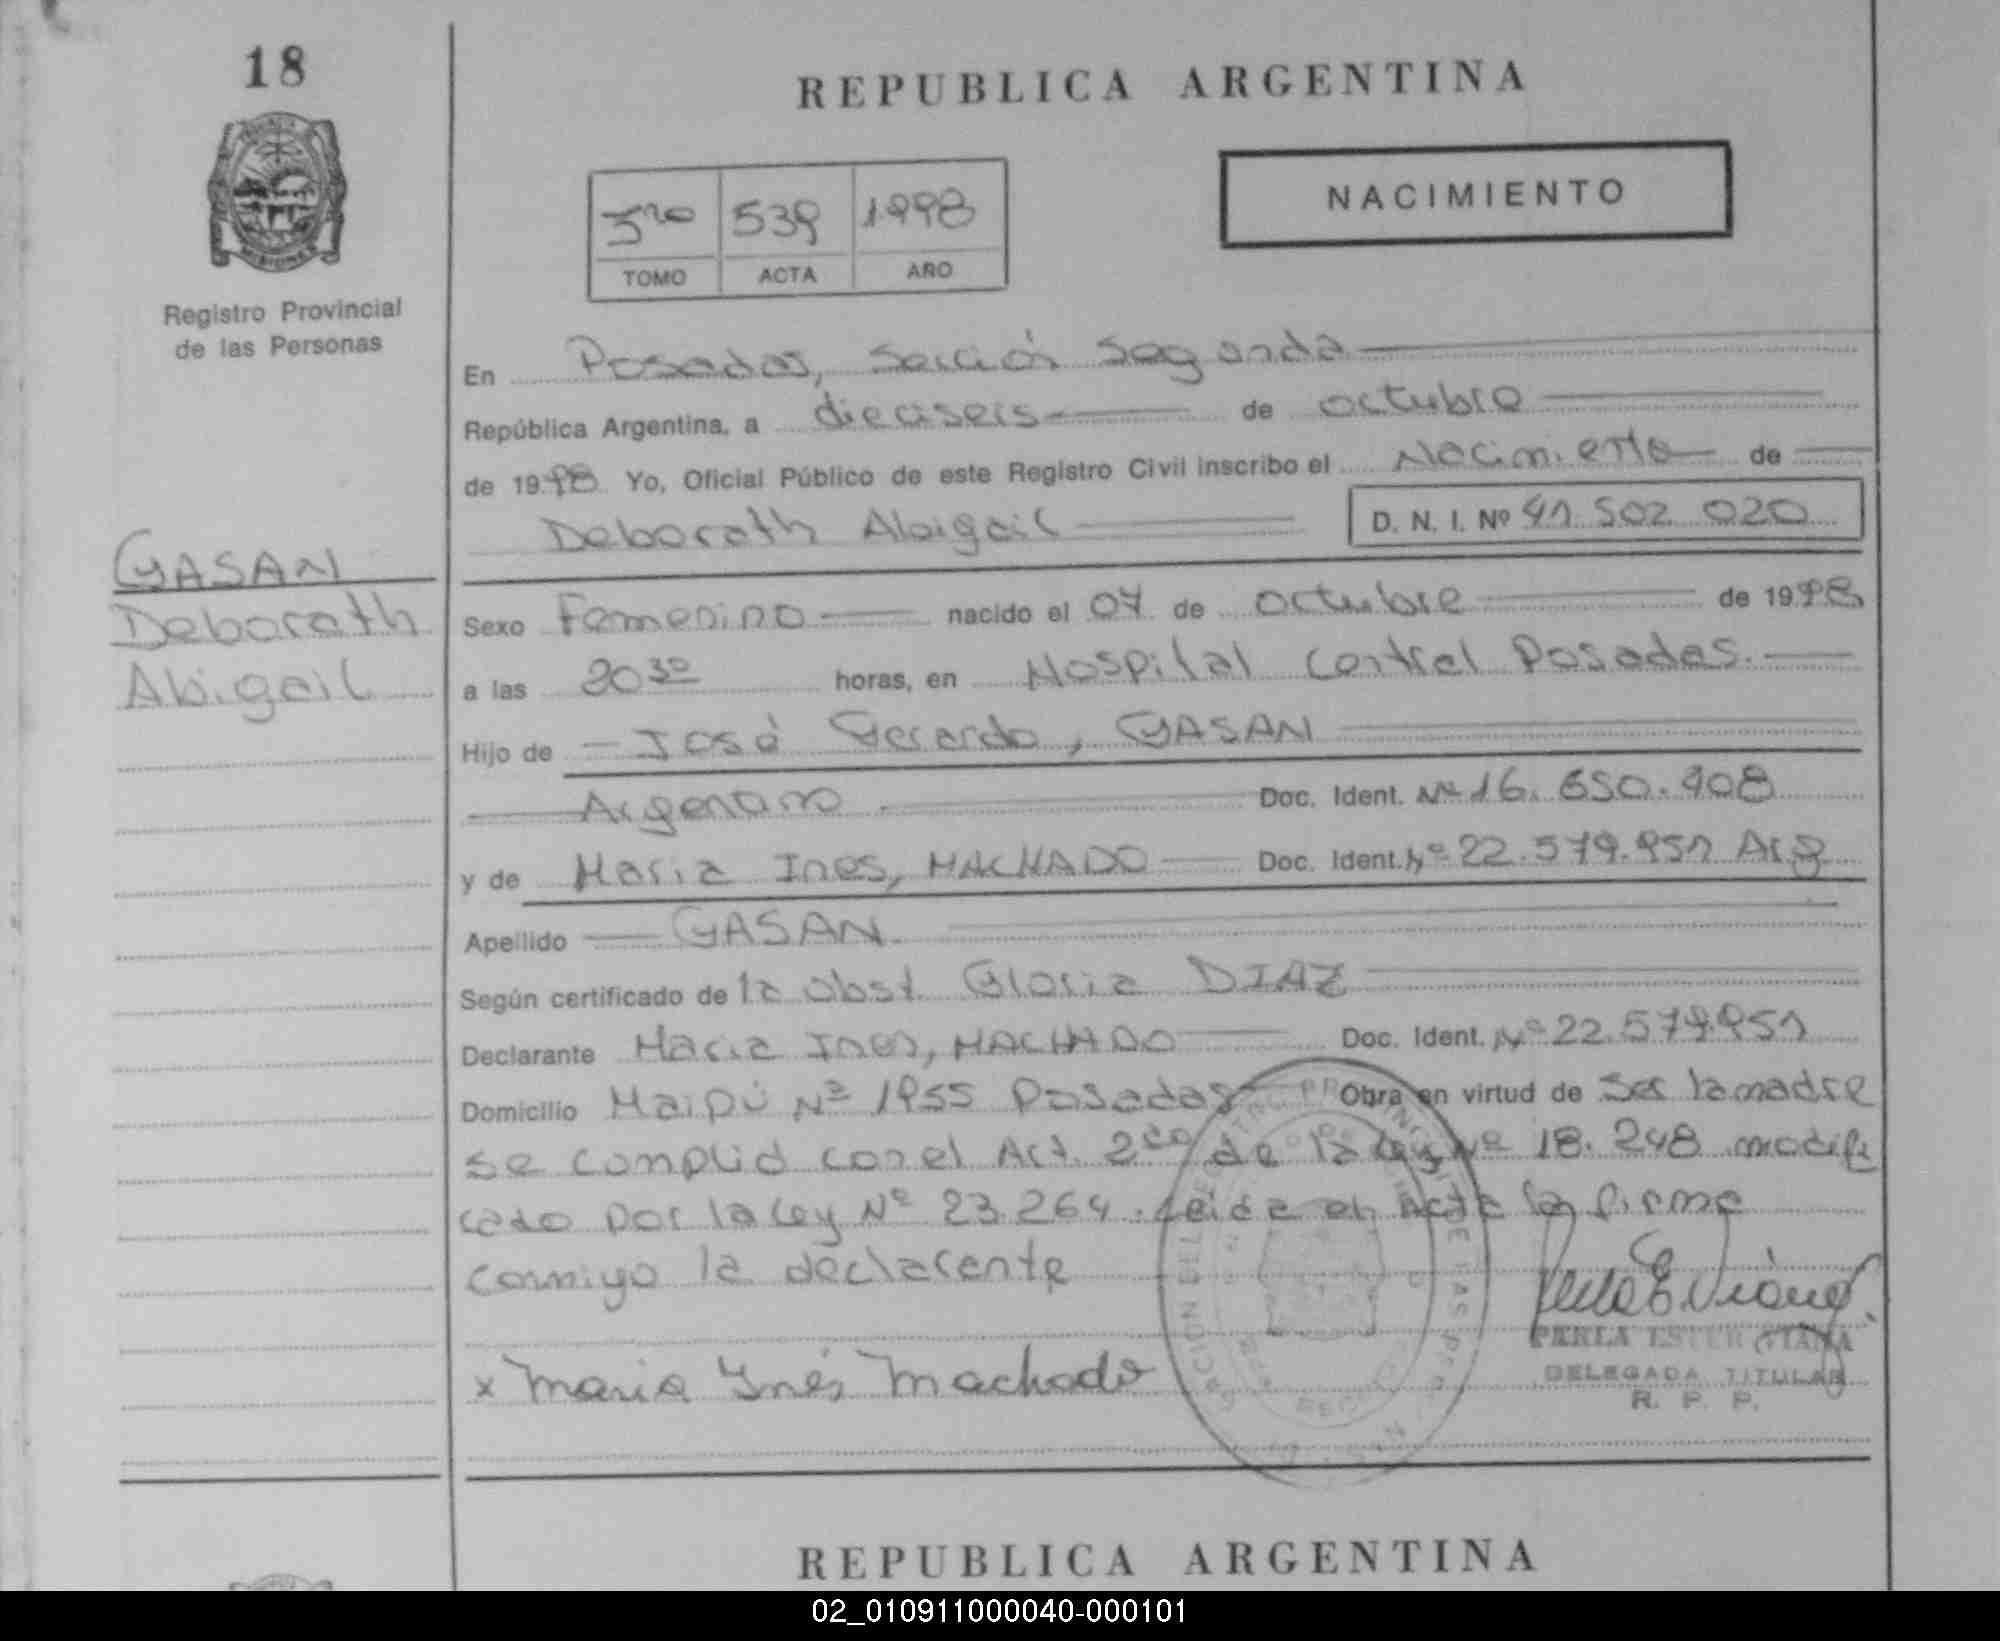 18
REPUBLICA ARGENTINA
NACIMIENTO
539 1998
TOMO ACTA AÑO
Registro Provincial
de las Personas
En Posadas, Sección Segunda
República Argentina, a dieciseis de octubre
de 1998 Yo, Oficial Público de este Registro Civil inscribo el Nacimiento de
Deborath Abigail D. N. I. Nº 41.502.020
GASAN
Deborath
Abigail
Sexo Femenino nacido el 07 de octubre de 1998
a las 20 30 horas, en Hospital Central Posadas.
Hijo de José Gerardo, GASAN
Argentino Doc. Ident. Nº 16.650.408
y de Maria Ines, MACHADO Doc. Ident. Nº 22.579.951 Arg
Apellido GASAN
Según certificado de la obst. Gloria DIAZ
Declarante Maria Ines, MACHADO Doc. Ident. Nº 22.579.951
Domicilio Maipú Nº 1955 Posadas Obra en virtud de ser la madre
se cumplió con el Art. 2do de la ley Nº 18.248 modifi
cado por la ley Nº 23.264. Leida el Acta la firma
conmigo la declarante
x Maria Inés Machado
PERLA ESTER VIANA
DELEGADA TITULAR
R. P. P.
REPUBLICA ARGENTINA
02_010911000040-000101